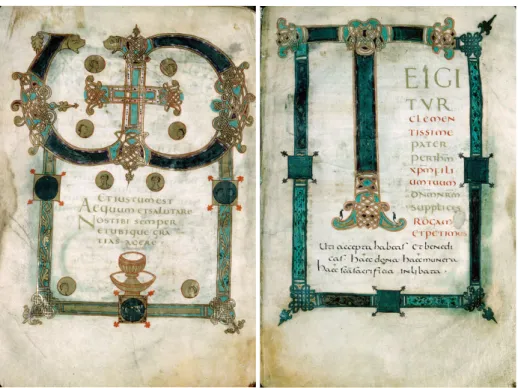 VD
Et iustum est
Aequum et salutare
Nos tibi semper
et ubique gra
tias agere
T
EIGI
TVR
clemen
tissime
pater
per ihm
xpm fili
um tuum
dnm nrm
supplices
Rogam
et petimus
Uti accepta habeas et benedi
cas haec dona haec munera
haec sca sacrificia inlibata.